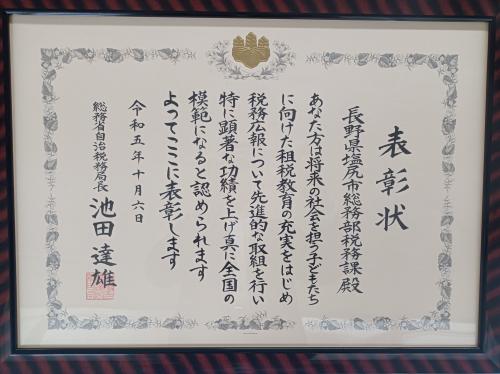 表彰状
長野県塩尻市総務部税務課殿
あなた方は将来の社会を担う子どもたち
に向けた租税教育の充実をはじめ
税務広報について先進的な取組を行い
特に顕著な功績を上げ真に全国の
模範になると認められます
よってここに表彰します
令和五年十月六日
総務省自治税務局長 池田達雄